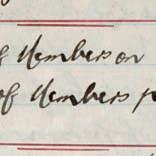 of Members on
of Members